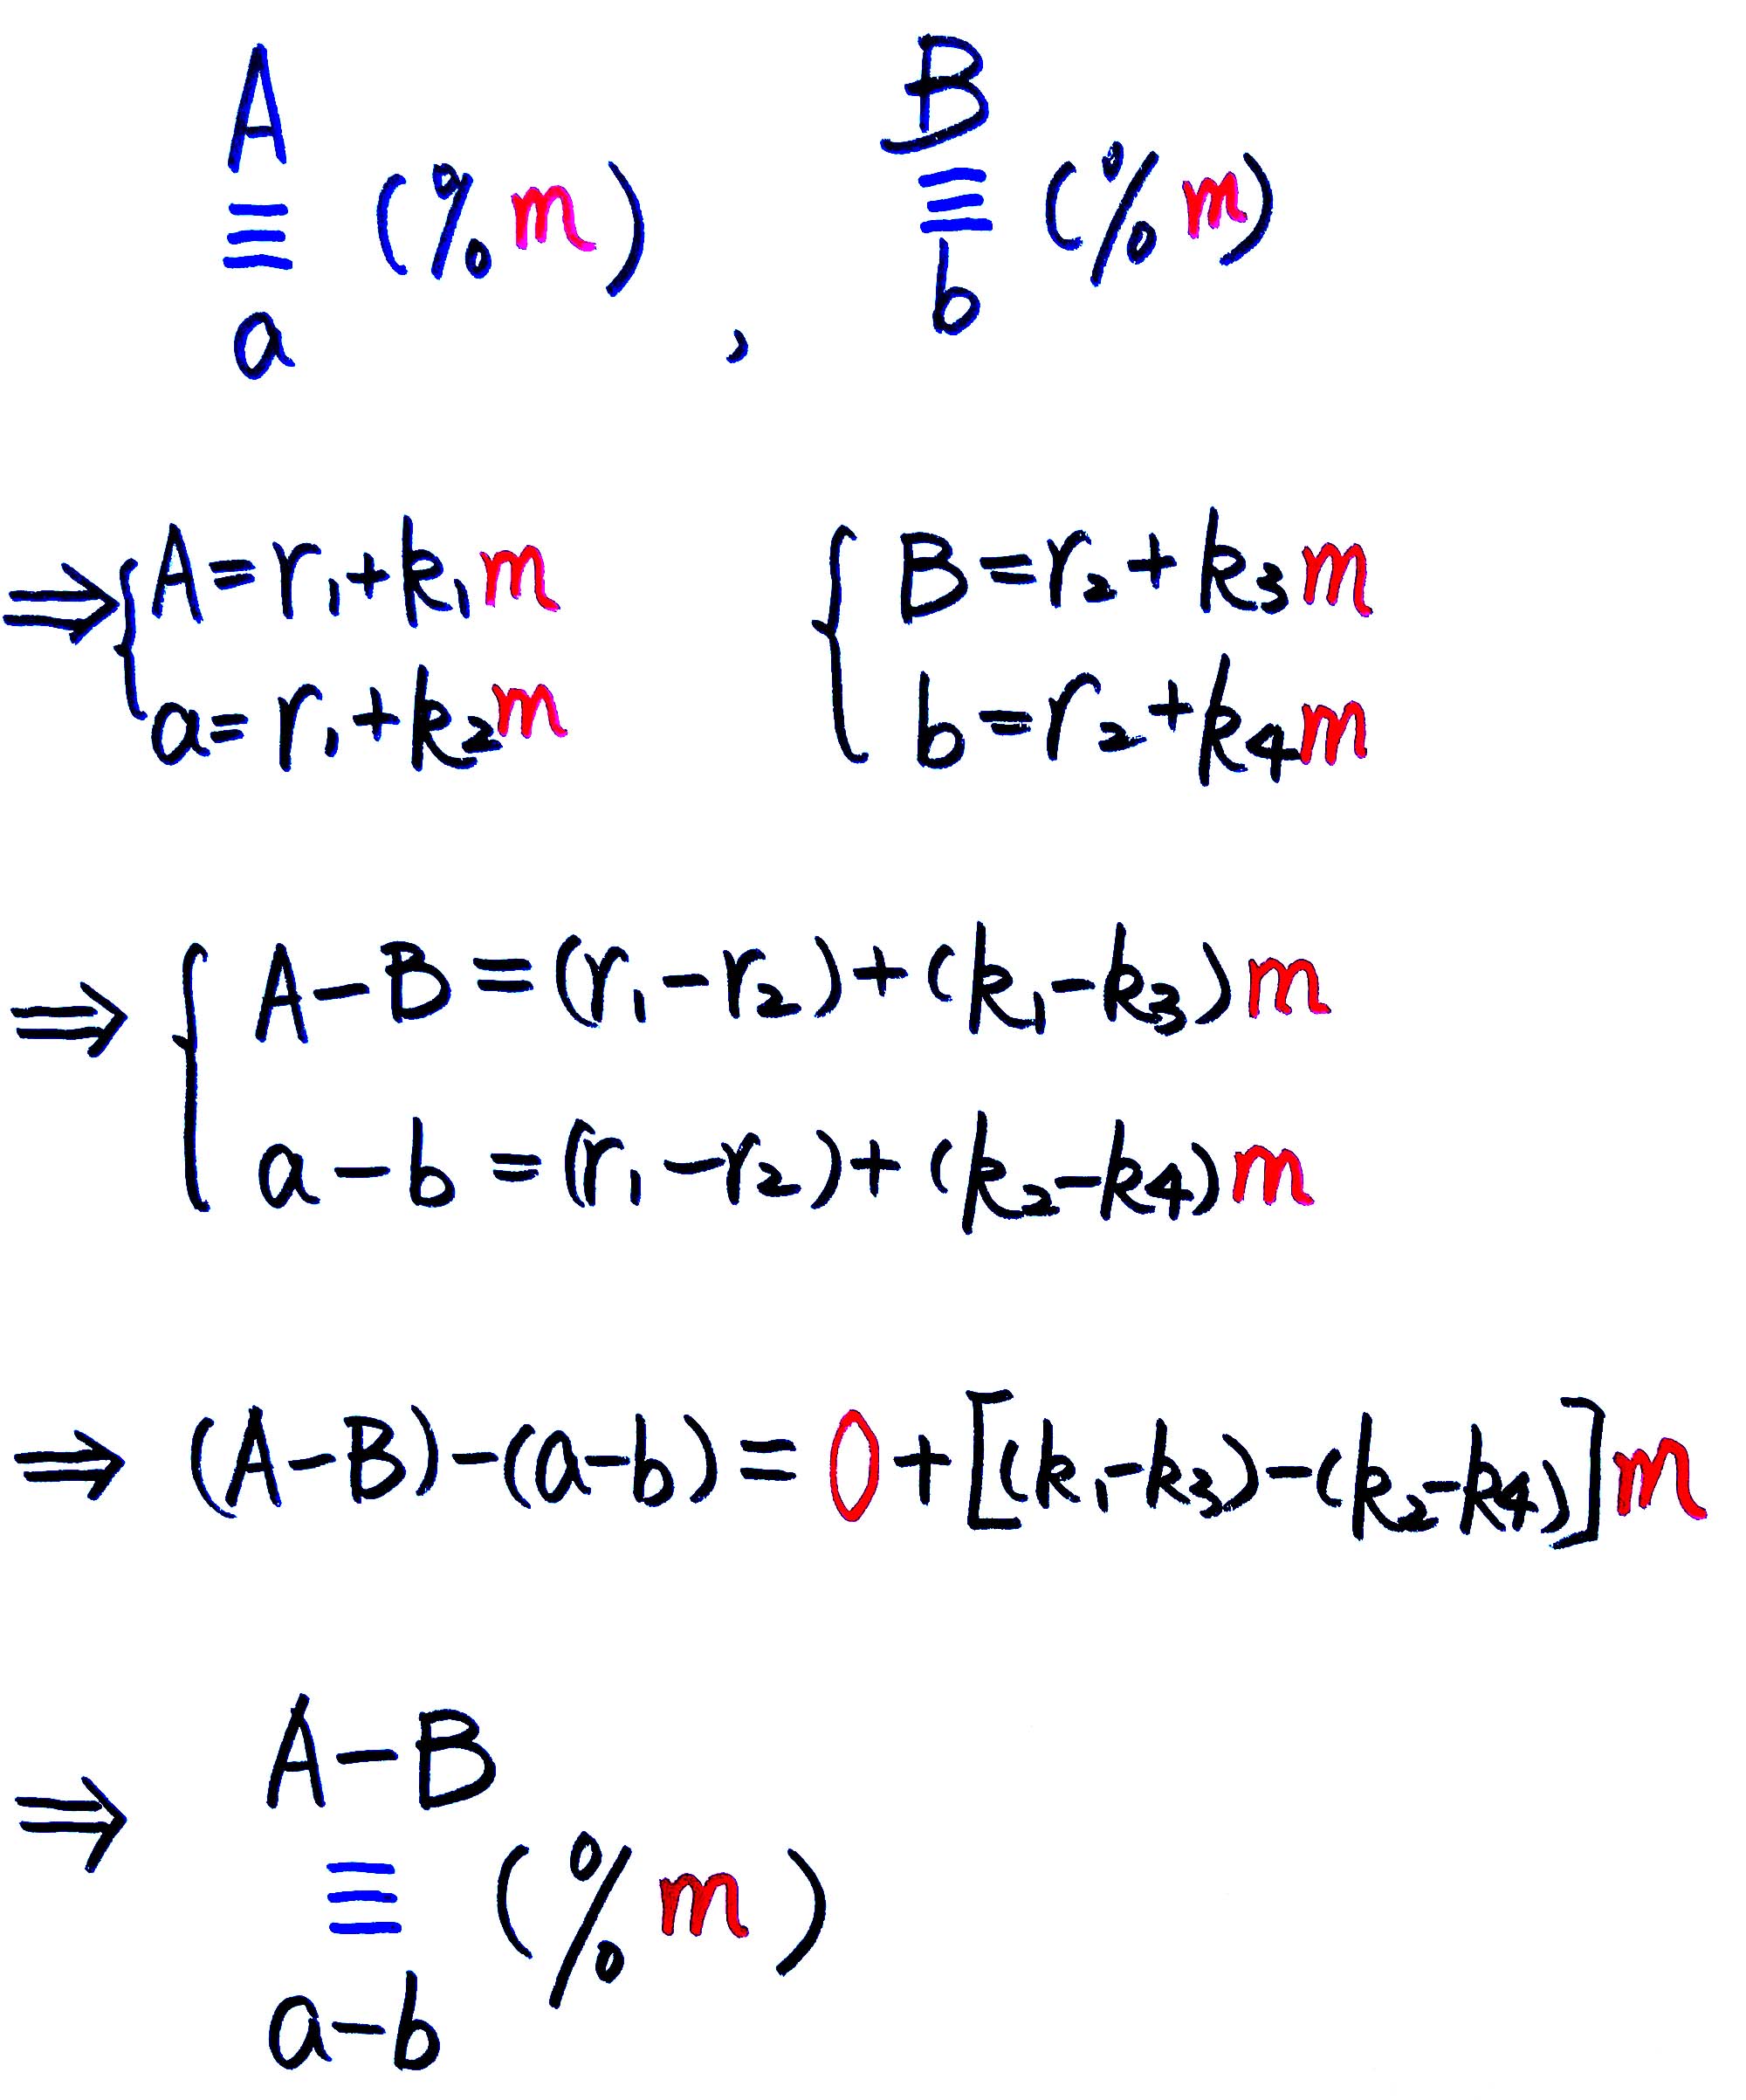 A ≡ a (%m) , B ≡ b (%m)
⇒ { A=r₁+k₁m { B=r₂+k₃m
a=r₁+k₂m b=r₂+k₄m
⇒ { A-B=(r₁-r₂)+(k₁-k₃)m
a-b=(r₁-r₂)+(k₂-k₄)m
⇒ (A-B)-(a-b)=0+[(k₁-k₃)-(k₂-k₄)]m
⇒ A-B
≡ (%m)
a-b